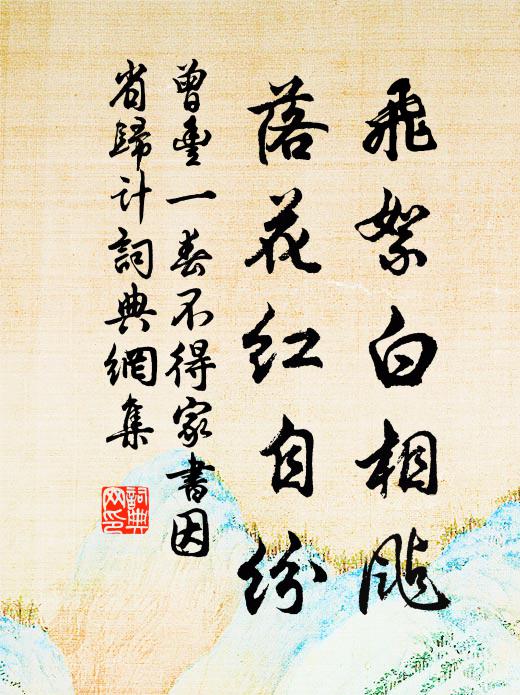 飛絮白相颭
落花紅自紛
曾豊一春不得家書因
省歸計詞典網集
詞典
网印